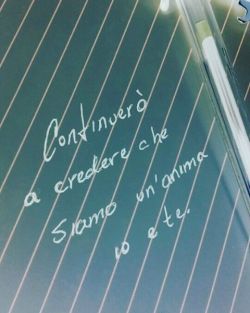 Continuerò
a credere che
siamo un'anima
io e te.